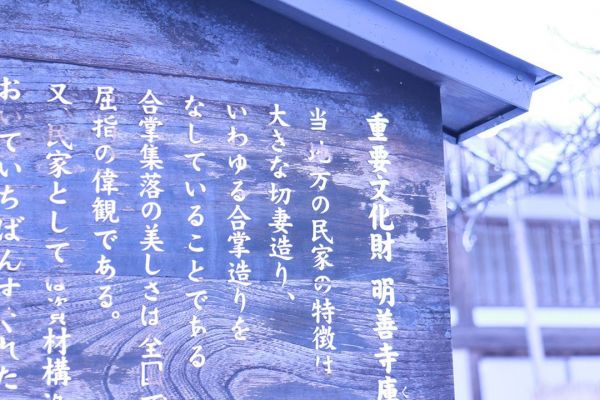 重要文化財 明善寺庫
当地方の民家の特徴は
大きな切妻造り、
いわゆる合掌造りを
なしていることである
合掌集落の美しさは全
屈指の偉観である。
又、民家としては資材構
おいていちばんすぐれた